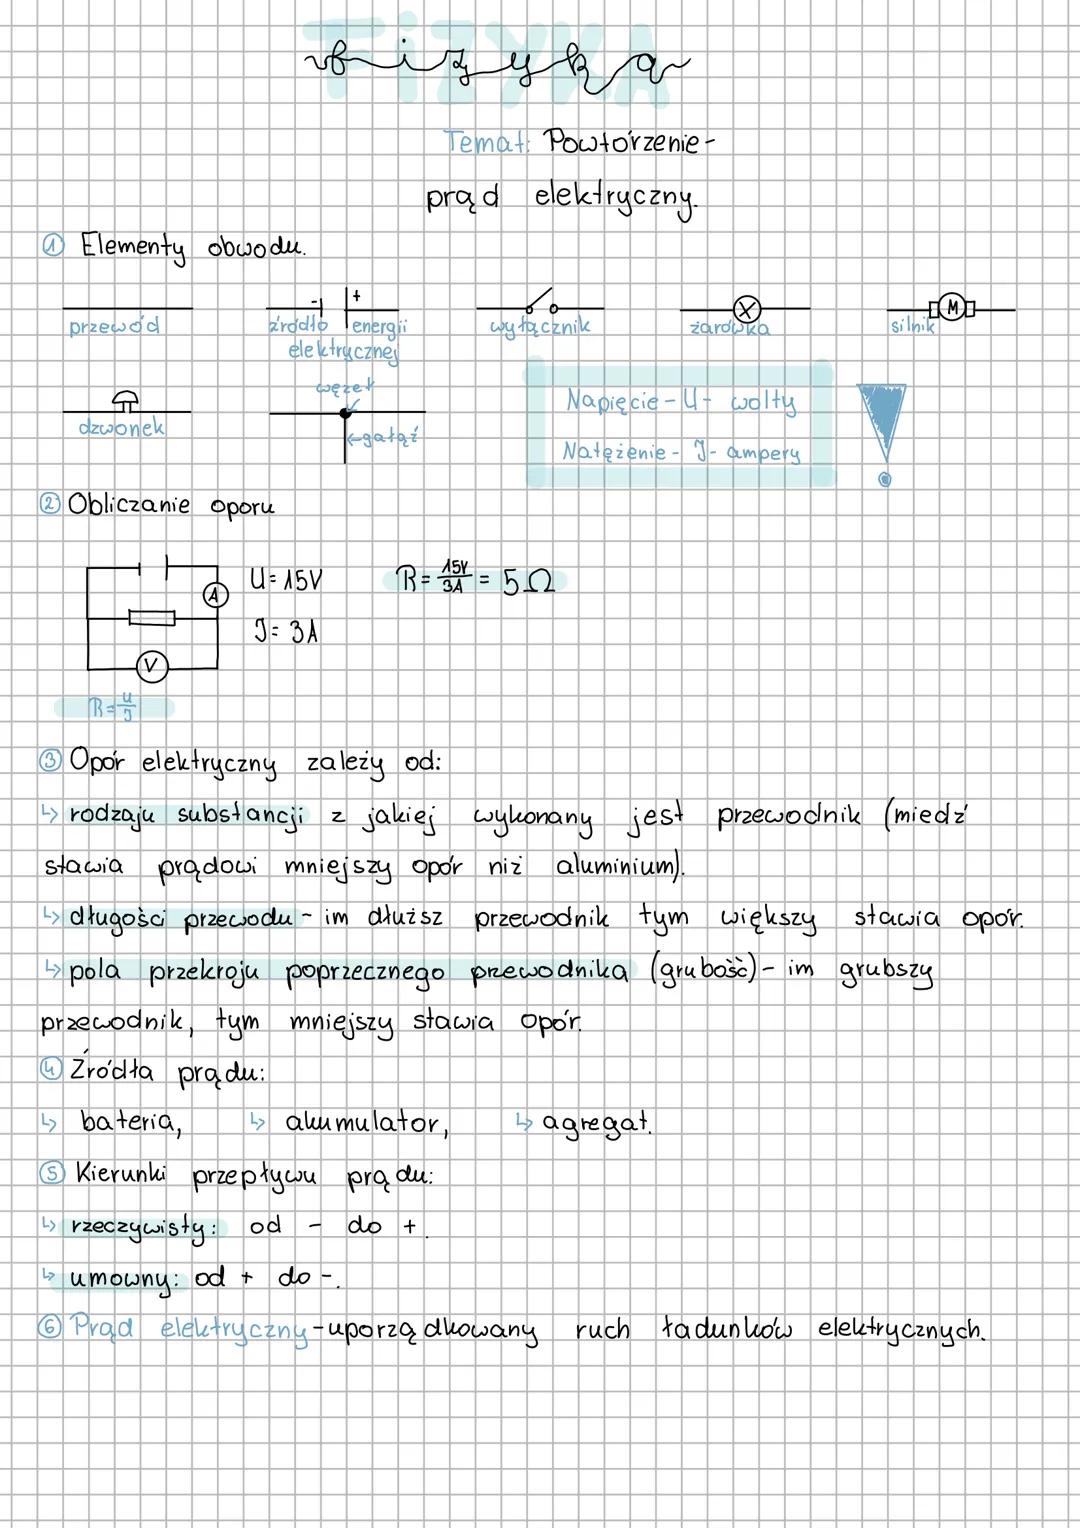 FiZYKA
fizyka
Temat: Powtórzenie-
prąd elektryczny.
① Elementy obwodu.
- +
M
przewód źródło energii wyłącznik żarówka silnik
elektrycznej
węzeł
dzwonek ←gałąź
Napięcie - U - wolty
Natężenie - J - ampery
② Obliczanie oporu
A
V
U = 15V
J = 3A
R = 15V/3A = 5Ω
R = U/J
③ Opór elektryczny zależy od:
↳ rodzaju substancji z jakiej wykonany jest przewodnik (miedź
stawia prądowi mniejszy opór niż aluminium).
↳ długości przewodu - im dłuższ przewodnik tym większy stawia opór.
↳ pola przekroju poprzecznego przewodnika (grubość) - im grubszy
przewodnik, tym mniejszy stawia opór.
④ Źródła prądu:
↳ bateria, ↳ akumulator, ↳ agregat.
⑤ Kierunki przepływu prądu:
↳ rzeczywisty: od - do +.
↳ umowny: od + do -.
⑥ Prąd elektryczny - uporządkowany ruch ładunków elektrycznych.